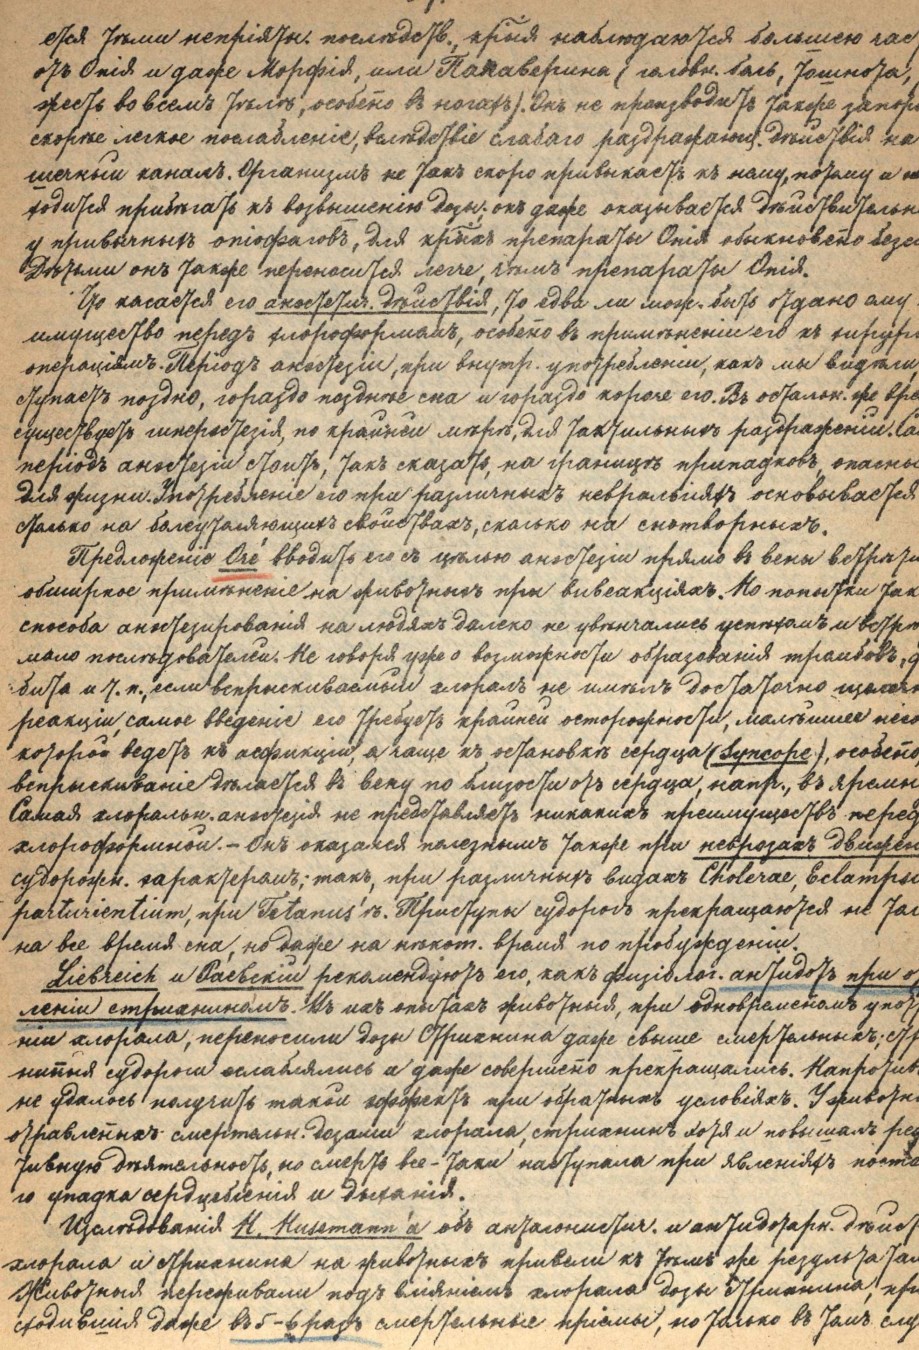 ется тѣми непріятн. послѣдств., крыя наблюдаются большею час
отъ Опія и даже Морфія, или Папаверина (головн. боль, тошнота,
жесть во всемъ тѣлѣ, особено въ ногахъ). Онъ не производитъ также запор
скорѣе легкое послабленіе, вслѣдствіе слабаго раздражающ. дѣйствія на
шечный каналъ. Организмъ не такъ скоро привыкаетъ къ нему, потому и не
ходится прибѣгать къ возвышенію дозы; онъ даже оказывается дѣйствительн
у привычныхъ опіофаговъ, для крыхъ препараты Опія обыкновено безсл
Дѣтьми онъ также переносится легче, чѣмъ препараты Опія.
Что касается его анэстетич. дѣйствія, то едва ли мож. быть отдано ему
имущество передъ хлороформомъ, особено въ примѣненіи его къ хирург
операціямъ. Періодъ анэстезіи, при внутр. употребленіи, какъ мы видѣли,
ступаетъ поздно, гораздо позднѣе сна и гораздо короче его. Въ осталън. же вре
существуетъ гиперэстезія, по крайней мѣрѣ, для тактильныхъ раздраженій. Са
періодъ анэстезіи стоитъ, такъ сказать, на границѣ припадковъ, опасны
для жизни. Употребленіе его при различныхъ невралгіяхъ основывается
столько на болеутоляющихъ свойствахъ, сколько на снотворныхъ.
Предложеніе Oré вводить его съ цѣлью анэстезіи прямо въ вены встрѣти
обширное примѣненіе на животныхъ при вивисекціяхъ. Но попытки так
способа анэстезированія на людяхъ далеко не увѣнчались успѣхомъ и встрѣ
мало послѣдователей. Не говоря уже о возможности образованія тромбовъ, ф
бита и т. п., если впрыскиваемый хлоралъ не имѣлъ достаточно щелочн
реакціи, самое введеніе его требуетъ крайней осторожности, малѣйшее несо
которой ведетъ къ асфикціи, а чаще къ остановкѣ сердца (Syncope), особено,
впрыскиваніе дѣлается въ вену по близости отъ сердца, напр., въ яремн
Самая хлоральн. анэстезія не представляетъ никакихъ преимуществъ перед
хлороформной. – Онъ оказался полезнымъ также при неврозахъ движен
судорожн. характеромъ; такъ, при различныхъ видахъ Cholerae, Eclampsi
parturientium, при Tetanus'ѣ. Приступы судорогъ прекращаются не тол
на все время сна, но даже на нѣкот. время по пробужденіи.
Liebreich и Раевскій рекомендуютъ его, какъ физіолог. антидотъ при о
леніи стрихниномъ. Въ ихъ опытахъ животныя, при одновременомъ упот
ніи хлорала, переносили дозы Стрихнина даже свыше смертельныхъ; стр
нитыя судороги ослаблялись и даже совершено прекращались. Напротив
не удалось получить такой эффектъ при обратныхъ условіяхъ. У животн
отравленныхъ смертельн. дозами хлорала, стрихнинъ хотя и повышалъ реф
тивную дѣятельность, но смерть все-таки наступала при явленіяхъ посте
го упадка сердцебіенія и дыханія.
Изслѣдованія H. Husemann'а объ антагонистич. и антидотарн. дѣйст
хлорала и стрихнина на животныхъ привели къ тѣмъ же результатам
Животныя переживали подъ вліяніемъ хлорала дозы Стрихнина, пре
сходившія даже въ 5–6 разъ смертельные пріемы, но только въ томъ слу